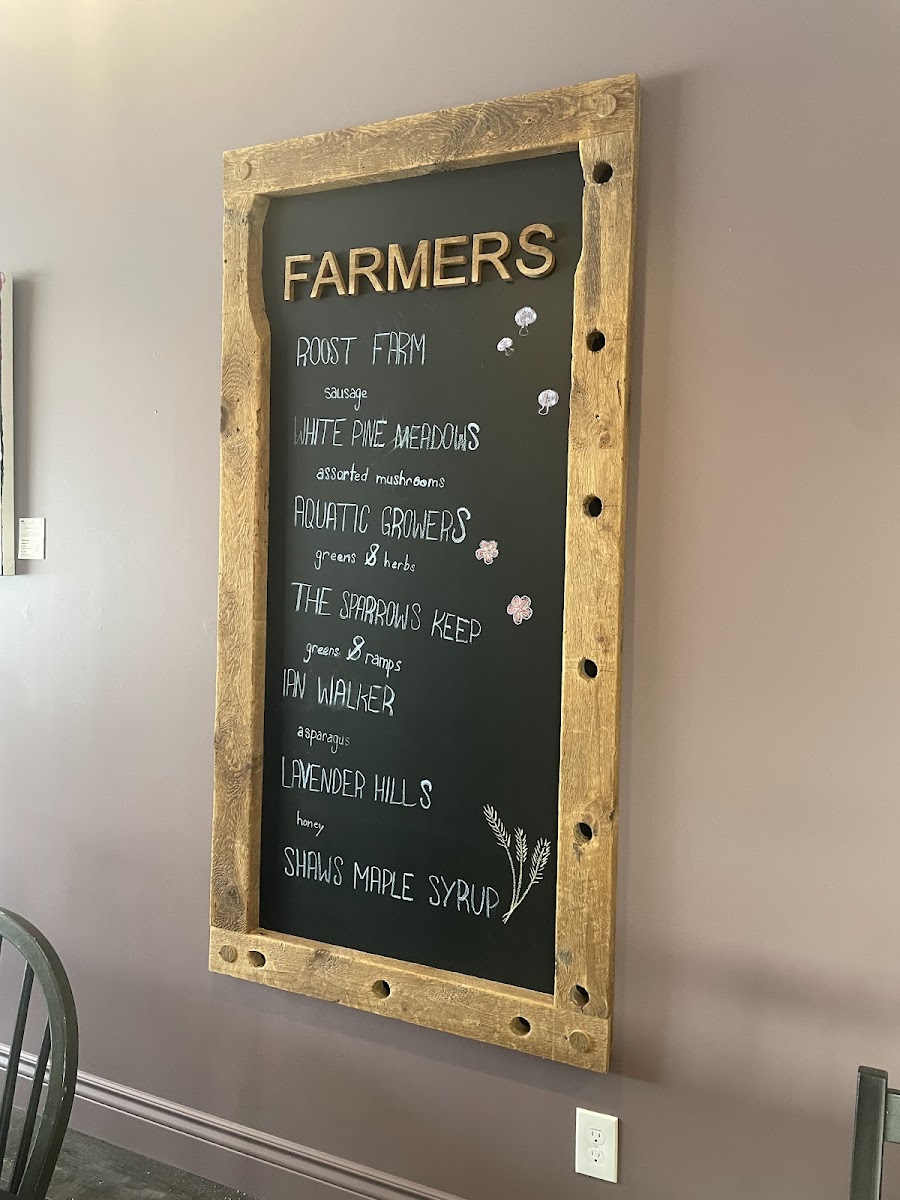 FARMERS
ROOST FARM
sausage
WHITE PINE MEADOWS
assorted mushrooms
AQUATIC GROWERS
greens & herbs
THE SPARROWS KEEP
greens & ramps
IAN WALKER
asparagus
LAVENDER HILLS
honey
SHAWS MAPLE SYRUP